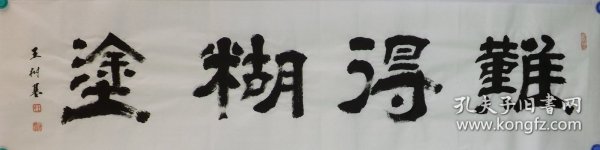 難得糊塗
王樹基
孔夫子旧书网
www.kongfz.com